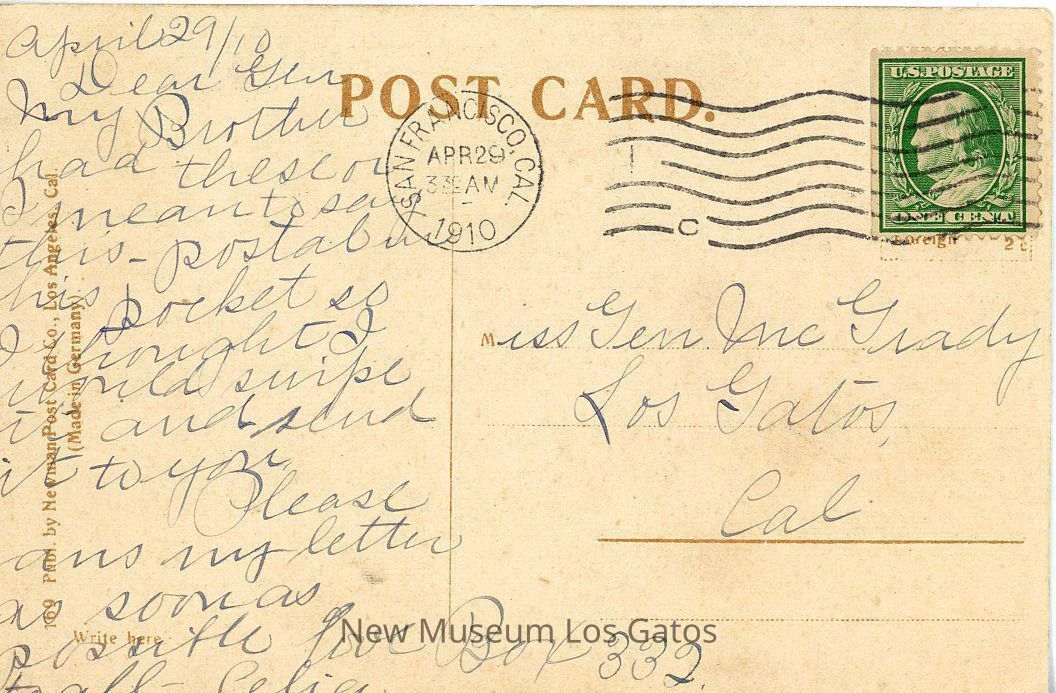 April 29/10
Dear Gen
My Brother
had these or
I meant to say
this - postal in
his pocket so
I thought I
would swipe
it and send
it to you.
Please
ans my letter
as soon as
possible
to all. Celia
POST CARD.
SAN FRANCISCO, CAL.
APR 29
3 30 AM
1910
C
U.S. POSTAGE
ONE CENT
Foreign 2c
Miss Gen McGrady
Los Gatos,
Cal
Box 332.
169 Publ. by Newman Post Card Co., Los Angeles, Cal.
(Made in Germany).
Write here
New Museum Los Gatos